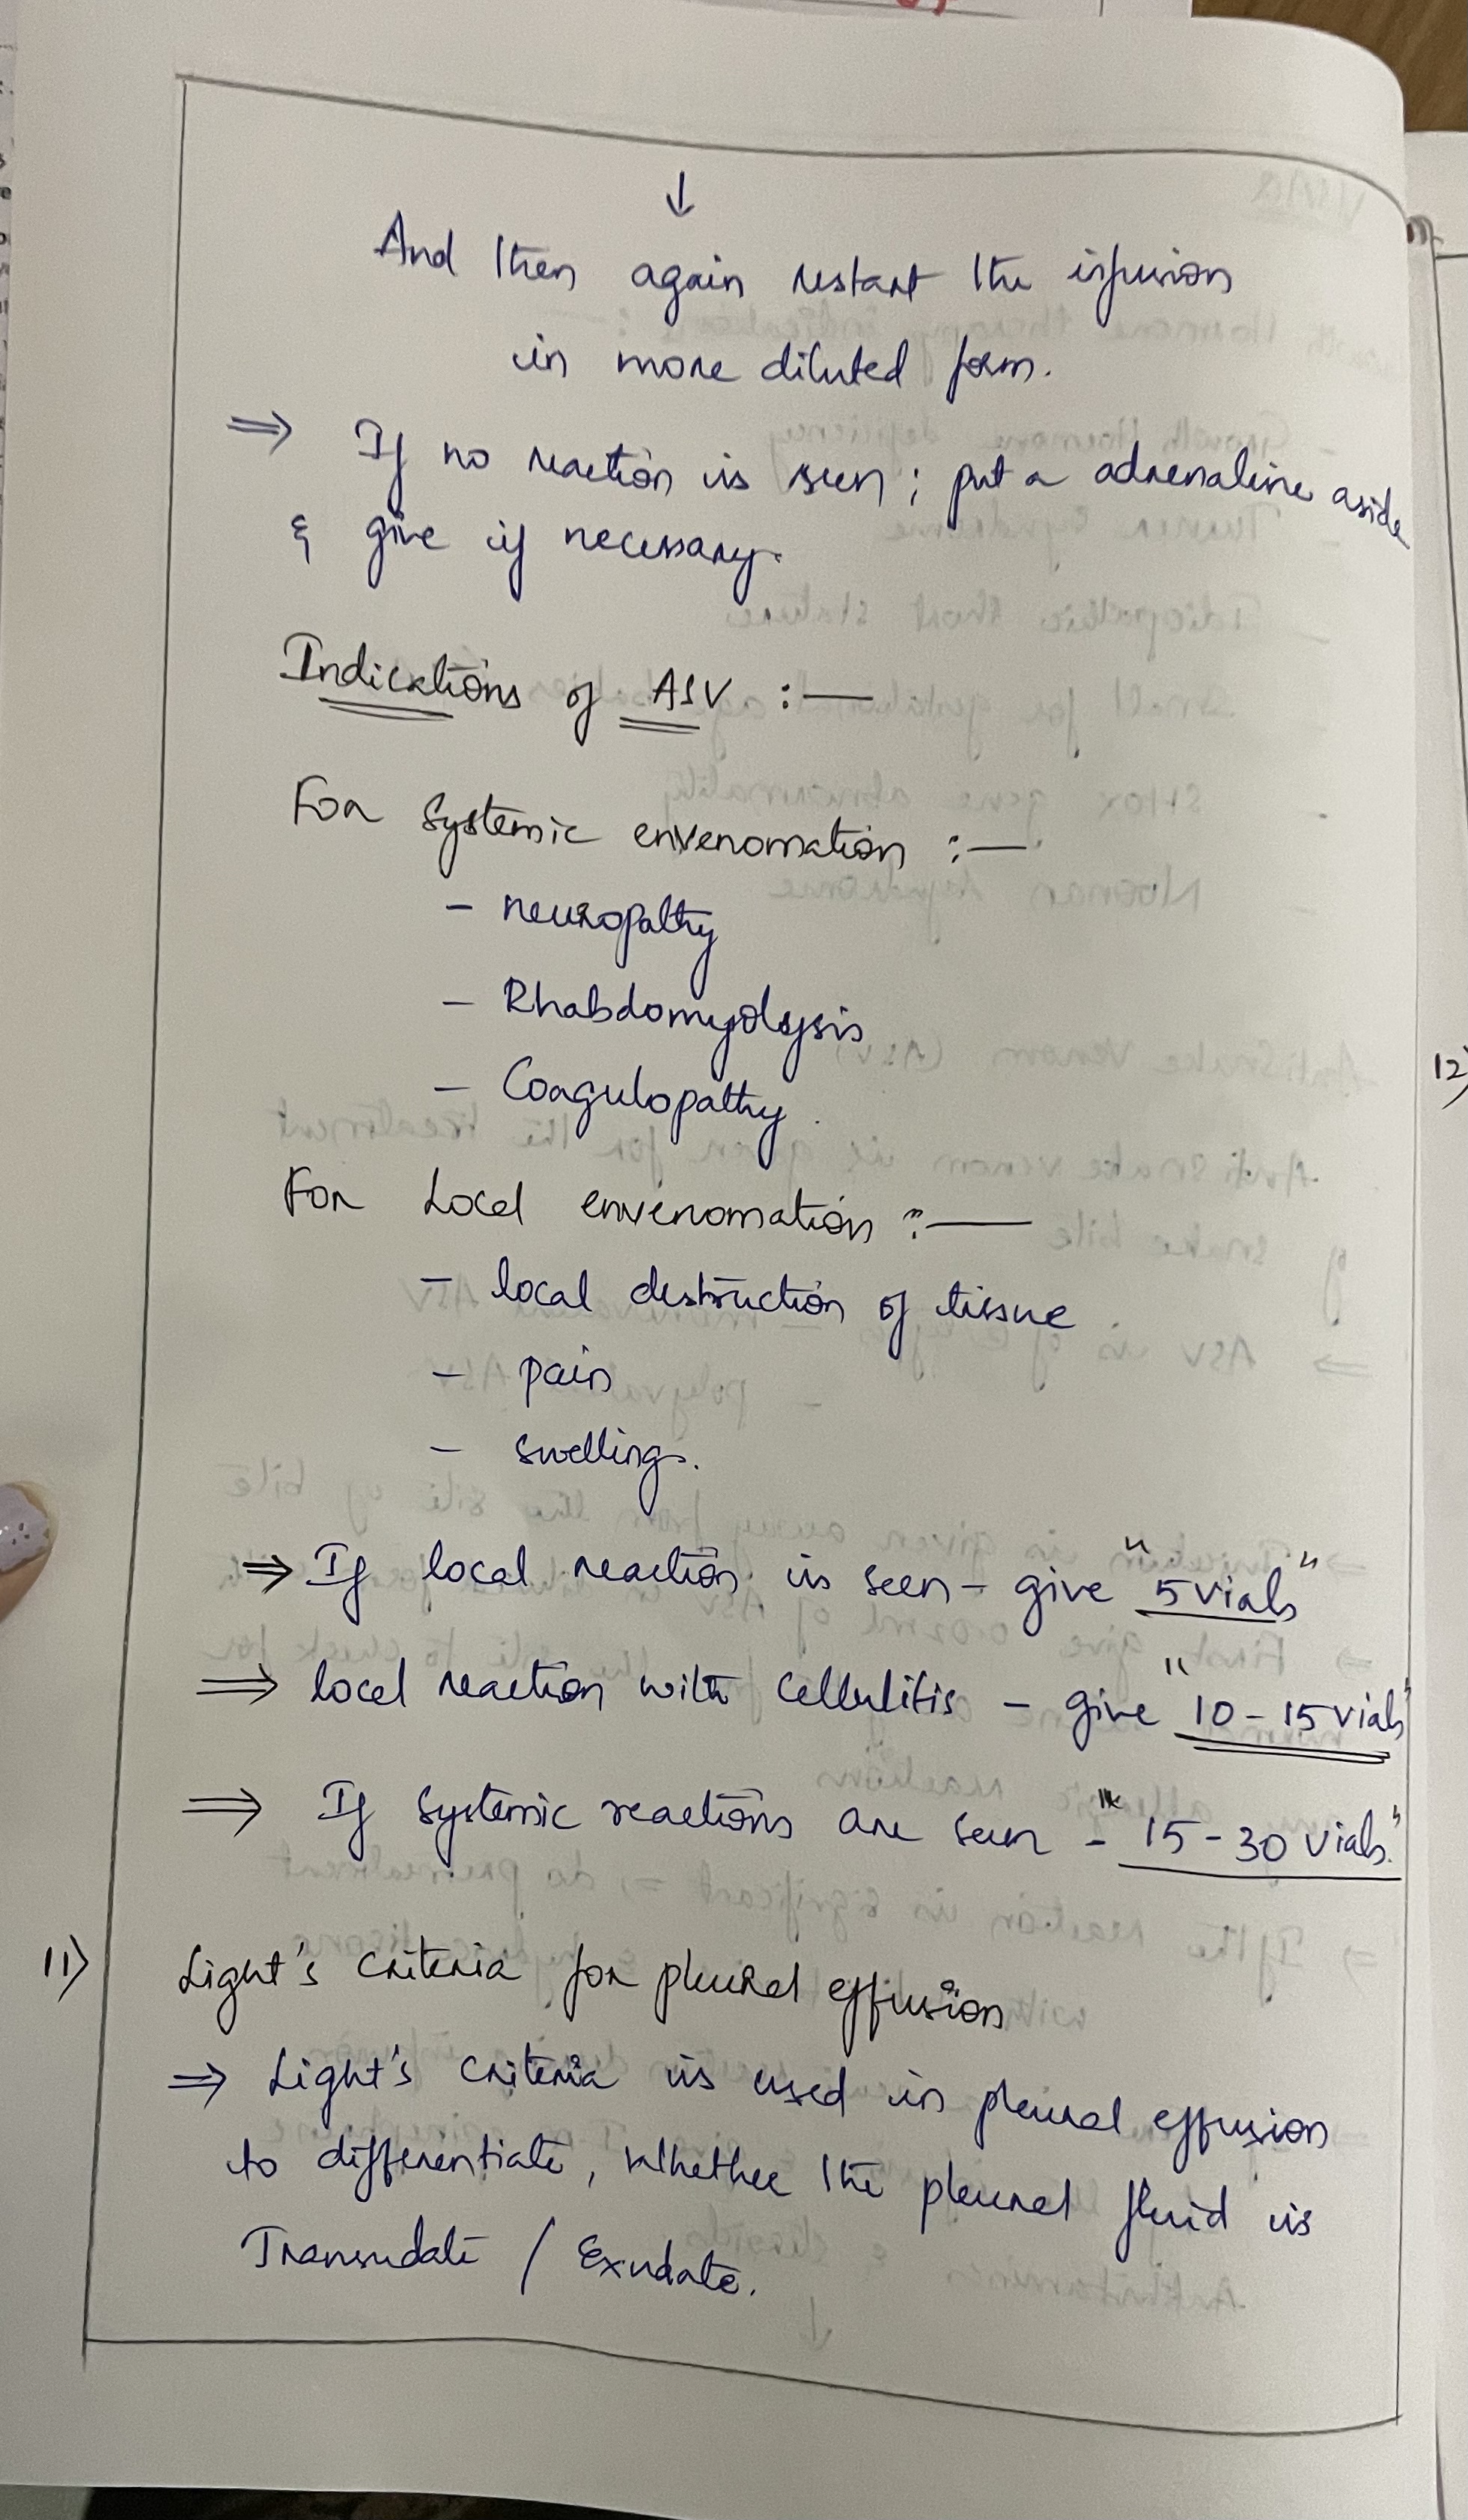 ↓
And then again restart the infusion
in more diluted form.
⇒ If no reaction is seen ; put a adrenaline aside
& give if necessary.
Indications of ASV :—
For Systemic envenomation :—
- neuropathy
- Rhabdomyolysis
- Coagulopathy.
For Local envenomation :—
- local destruction of tissue
- pain
- swelling.
⇒ If local reaction is seen - give "5 vials"
⇒ local reaction with cellulitis - give "10 - 15 vials"
⇒ If systemic reactions are seen - "15 - 30 vials."
11) Light's criteria for pleural effusion
⇒ Light's criteria is used in pleural effusion
to differentiate, whether the pleural fluid is
Transudate / Exudate.
12)